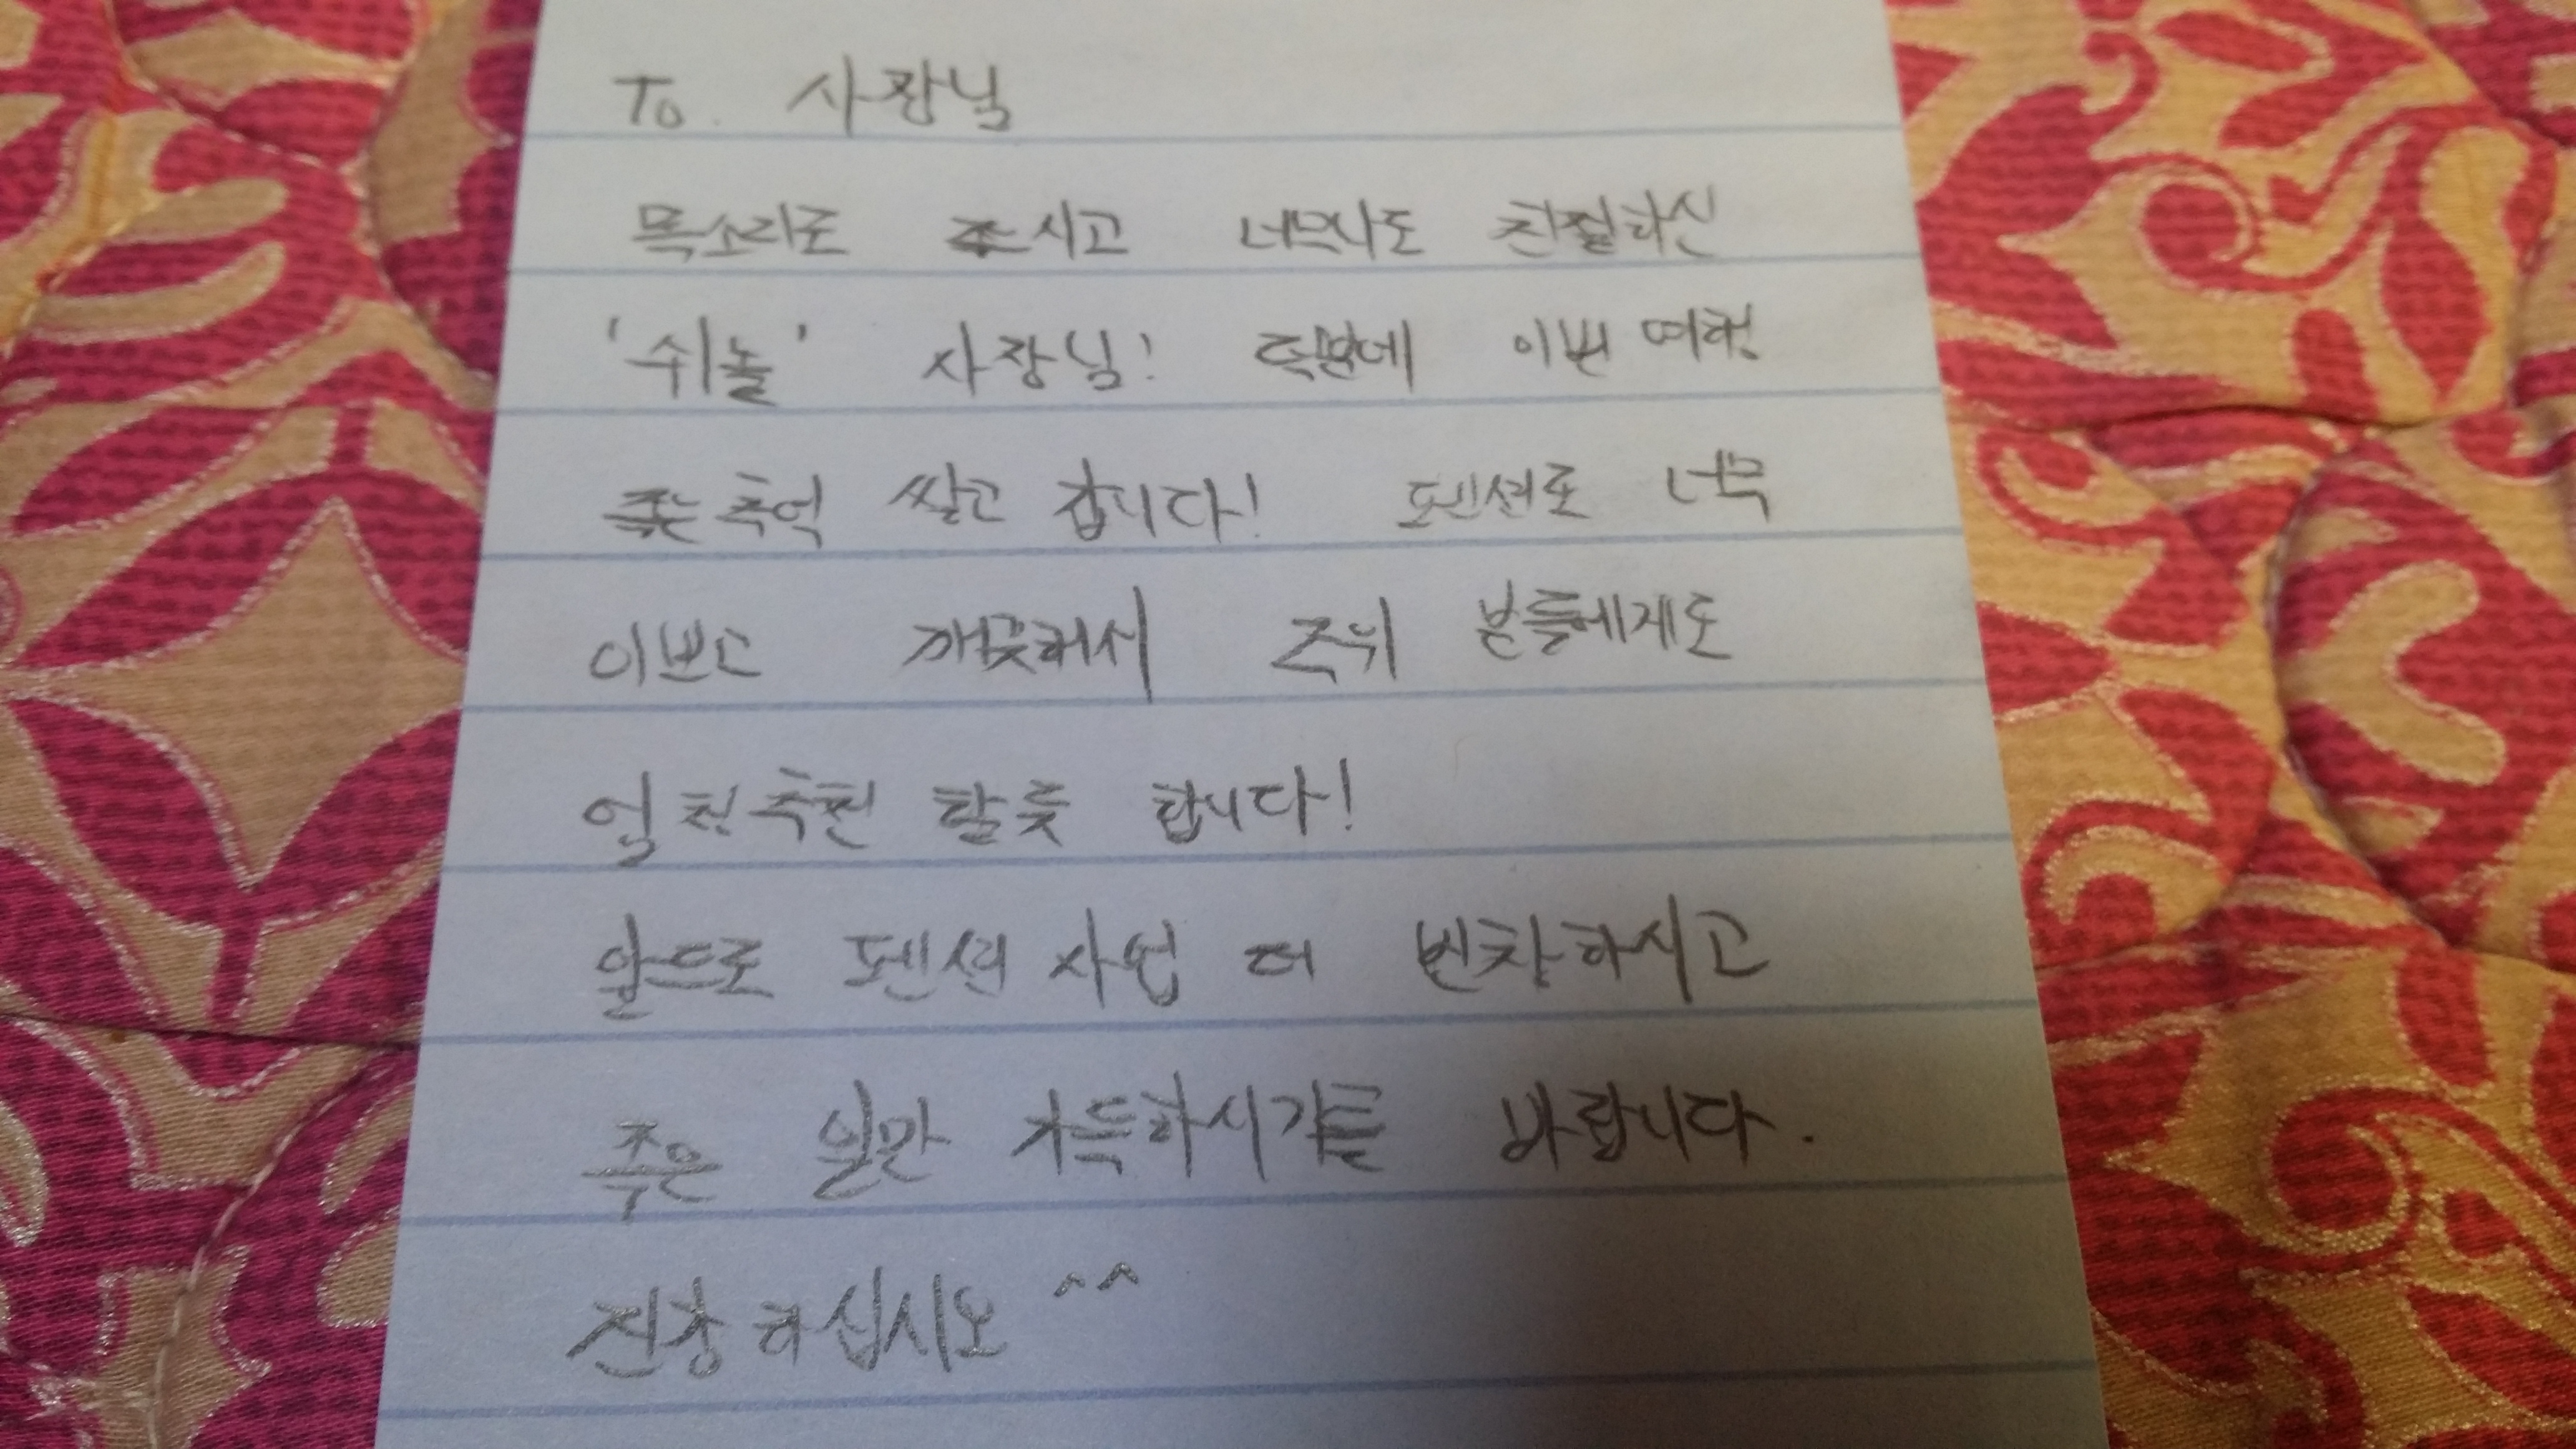 To. 사장님
목소리도 주시고 너무나도 친절하신
'쉬놀' 사장님! 덕분에 이번 여행
좋은 추억 쌓고 갑니다! 펜션도 너무
이쁘고 깨끗해서 주위 분들에게도
엄청 추천 할듯 합니다!
앞으로 펜션 사업 더 번창하시고
좋은 일만 가득하시기를 바랍니다.
건강하십시오 ^^